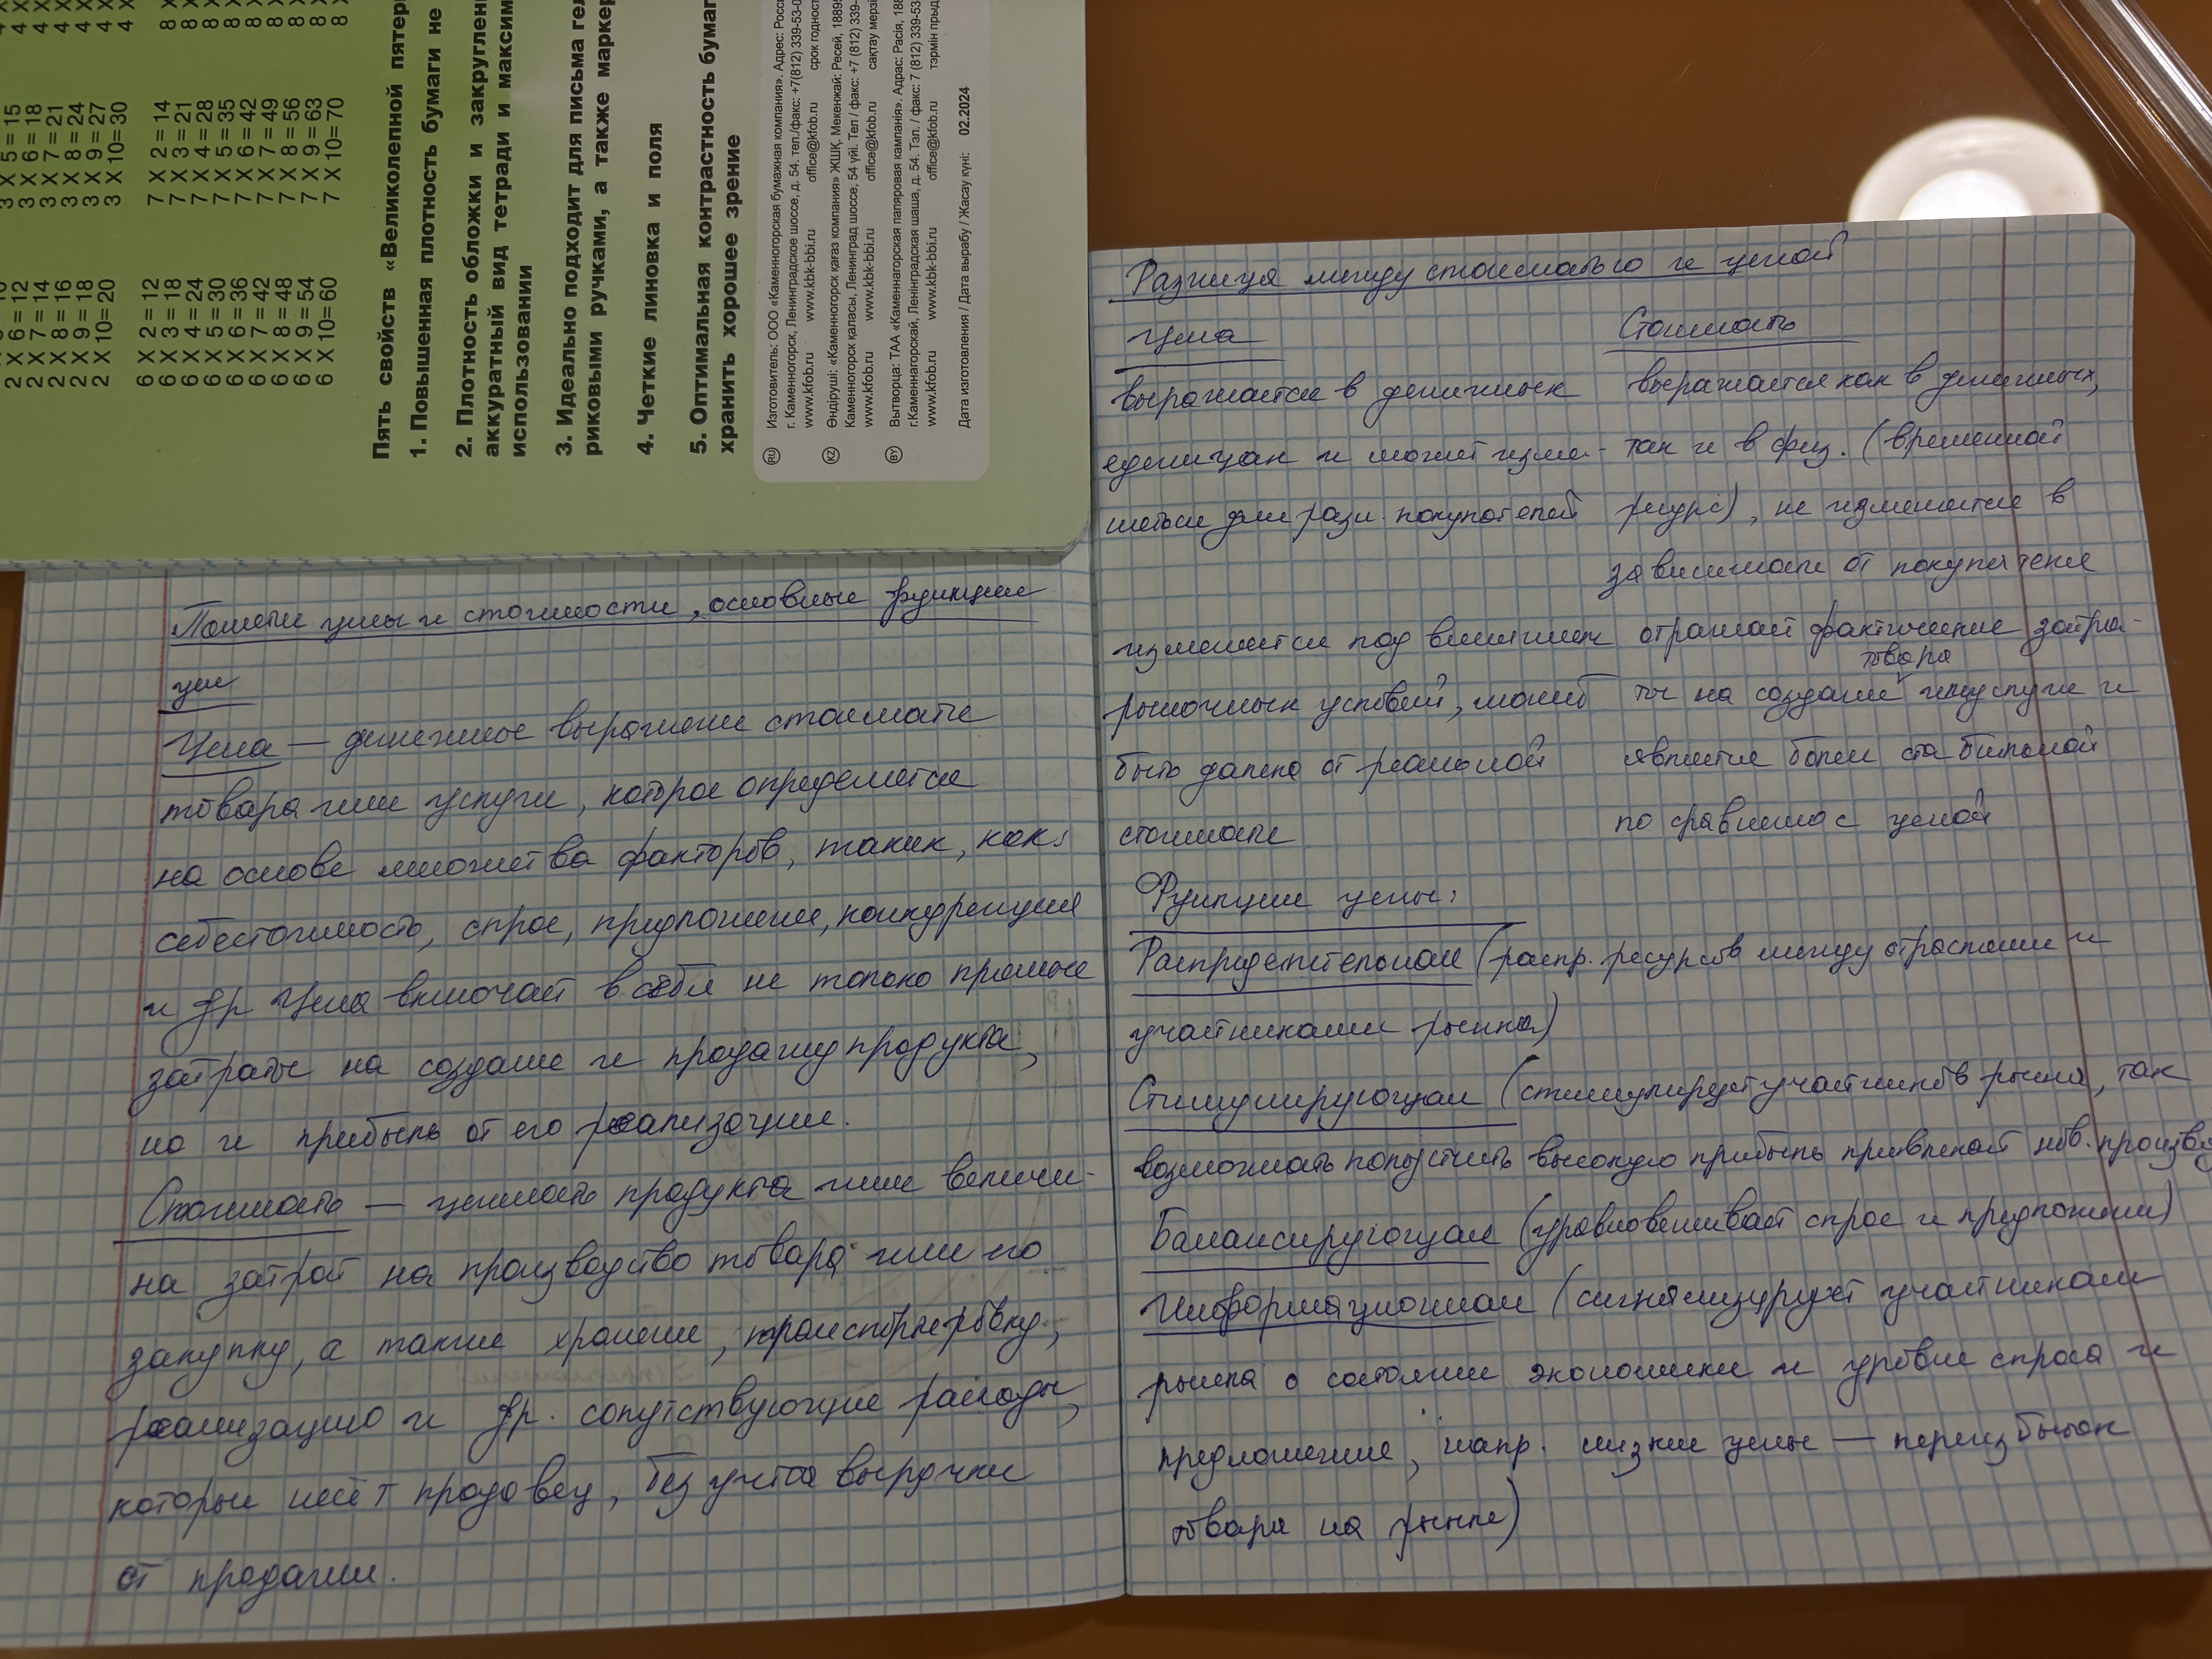 3 X 5 = 15
3 X 6 = 18
3 X 7 = 21
3 X 8 = 24
3 X 9 = 27
3 X 10= 30
2 X 6 = 12
2 X 7 = 14
2 X 8 = 16
2 X 9 = 18
2 X 10= 20
7 X 2 = 14
7 X 3 = 21
7 X 4 = 28
7 X 5 = 35
7 X 6 = 42
7 X 7 = 49
7 X 8 = 56
7 X 9 = 63
7 X 10= 70
6 X 2 = 12
6 X 3 = 18
6 X 4 = 24
6 X 5 = 30
6 X 6 = 36
6 X 7 = 42
6 X 8 = 48
6 X 9 = 54
6 X 10= 60
Пять свойств «Великолепной
1. Повышенная плотность бумаги не
2. Плотность обложки и
аккуратный вид тетради и
использовании
3. Идеально подходит для письма
риковыми ручками, а также
4. Четкие линовка и поля
5. Оптимальная контрастность
хранить хорошее зрение
RU Изготовитель: ООО «Каменногорская бумажная компания». Адрес:
г. Каменногорск, Ленинградское шоссе, д. 54. тел./факс: +7(812)
www.kfob.ru www.kbk-bbi.ru office@kfob.ru срок
KZ Өндіруші: «Каменногорск қағаз компания» ЖШҚ, Мекенжай: Ресей,
Каменногорск қаласы, Ленинград шоссе, 54 үйі. Тел / факс: +7 (812)
www.kfob.ru www.kbk-bbi.ru office@kfob.ru сақтау
BY Вытворца: ТАА «Каменнагорская папяровая кампанія». Адрас: Расія,
г.Каменнагорскай, Ленінградская шаша, д. 54. Тэл. / факс: 7 (812)
www.kfob.ru www.kbk-bbi.ru office@kfob.ru тэрмін
Дата изготовления / Дата вырабу / Жасау күні: 02.2024
Понятие цены и стоимости, основные функции
цен
Цена — денежное выражение стоимости
товара или услуги, которое определяется
на основе множества факторов, таких, как:
себестоимость, спрос, предложение, конкуренция
и др Цена включает в себя не только прямые
затраты на создание и продажу продукта,
но и прибыль от его реализации.
Стоимость — ценность продукта или величи-
на затрат на производство товара или его
закупку, а также хранение, транспортировку,
реализацию и др. сопутствующие расходы,
которые несёт продавец, без учёта выручки
от продажи.
Разница между стоимостью и ценой
Цена
выражается в денежных
единицах и может изме-
няться для разн. покупателей
изменяется под влиянием
рыночных условий, может
быть далека от реальной
стоимости
Стоимость
выражается как в денежных,
так и в физ. (временной
ресурс), не изменяется в
зависимости от покупателя
отражает фактические затра-
товара
ты на создание или услуги и
является более стабильной
по сравнению с ценой
Функции цены:
Распределительная (распр. ресурсов между отраслями и
участниками рынка)
Стимулирующая (стимулирует участников рынка, так
возможность получить высокую прибыль привлекает нов.
Балансирующая (уравновешивает спрос и предложение)
Информационная (сигнализирует участникам
рынка о состоянии экономики и уровне спроса и
предложения, напр. низкие цены — переизбыток
товара на рынке)